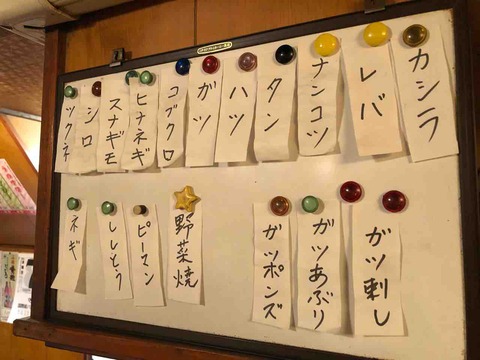 カシラ
レバ
ナンコツ
タン
ハツ
ガツ
コブクロ
ヒナネギ
スナギモ
シロ
ツクネ
ガツ刺し
ガツあぶり
ガツポンズ
野菜焼
ピーマン
ししとう
ネギ